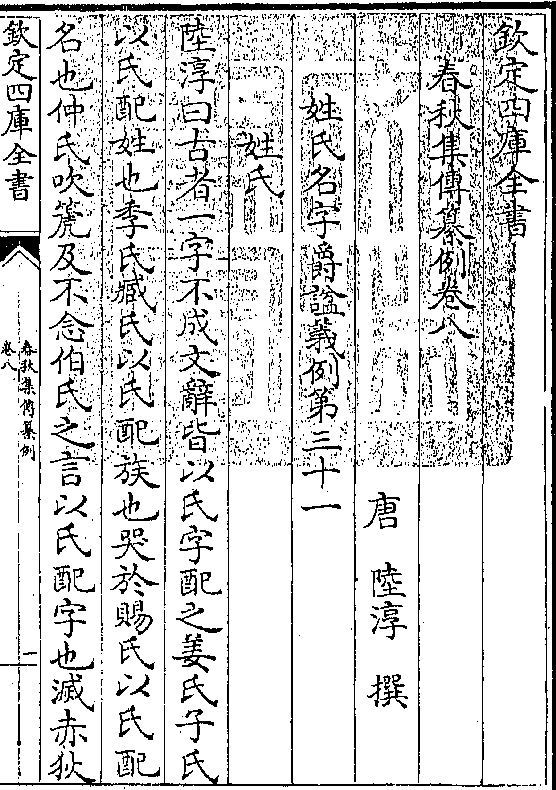 欽定四庫全書
春秋集傳纂例卷八
唐 陸淳 撰
姓氏名字爵諡義例第三十一
姓氏
陸淳曰古者一字不成文辭皆以氏字配之姜氏子氏
以氏配姓也季氏臧氏以氏配族也哭於賜氏以氏配
名也仲氏吹篪及不念伯氏之言以氏配字也滅赤狄
欽定四庫全書
春秋集傳纂例
卷八
一